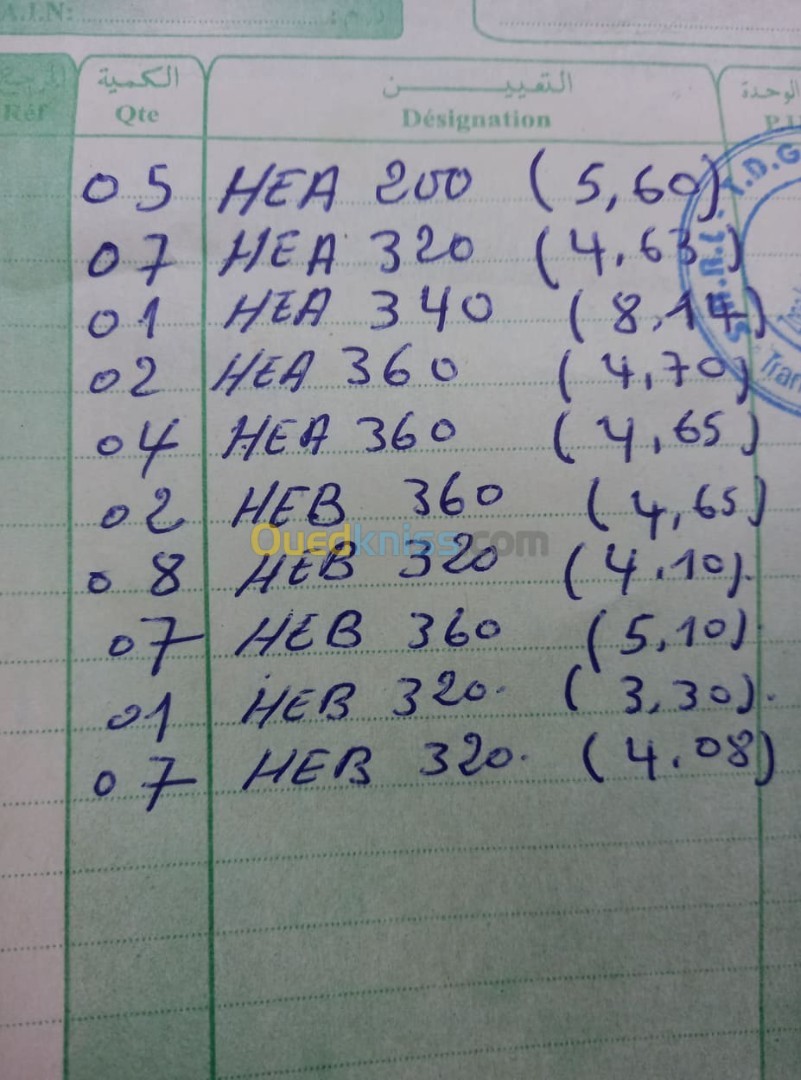 A.I.N: د.م :
الكمية التعييـــــن الوحدة
Réf Qte Désignation P.U
05 HEA 200 (5,60)
07 HEA 320 (4,63)
01 HEA 340 (8,14)
02 HEA 360 (4,70)
04 HEA 360 (4,65)
02 HEB 360 (4,65)
Ouedkniss.com
08 HEB 320 (4.10).
07 HEB 360 (5,10).
01 HEB 320. (3,30).
07 HEB 320. (4.08)
S.A.R.L. T.D.G
Tran